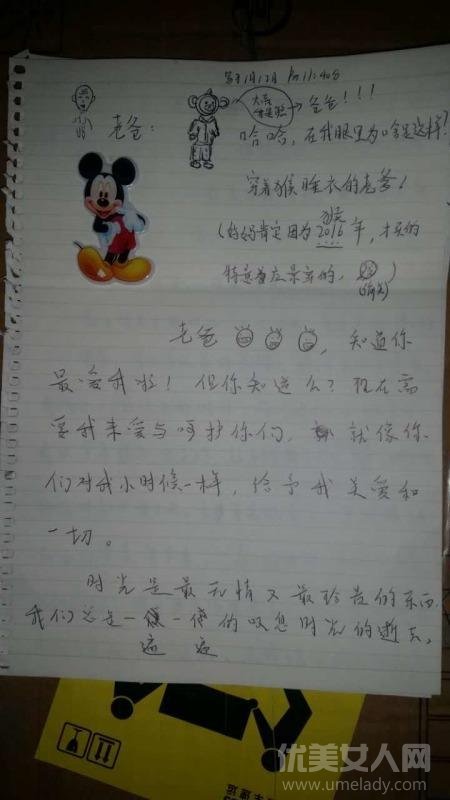 写于1月12日 Pm11:40分
老爸：
爸爸！！！
哈哈，在我眼里为啥是这样？
穿着猴睡衣的老爹！
猴
（妈妈肯定因为2016年，才买的
特意着应景穿的，（偷笑））
老爸，知道你
最爱我啦！但你知道么？现在需
要我来爱与呵护你们，就像你
们对我小时候一样，给予我关爱和
一切。
时光是最无情又最珍贵的东西，
我们总是一遍一遍的叹息时光的逝去，
遍 遍
优美女人网
www.umelady.com